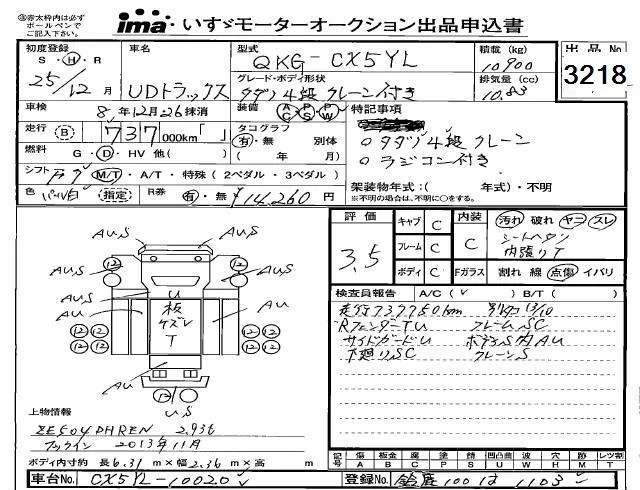 ※赤太枠内は必ず
ボールペンで
ご記入下さい。
ima いすゞモーターオークション出品申込書
初度登録 S・H・R 25/12月
車名 UDトラックス
型式 QKG-CX5YL
グレード・ボディ形状 タダノ4段クレーン付き
積載(kg) 10900
排気量(cc) 10.83
出品No 3218
車検 8年12月26抹消
装備 AC PS PW
特記事項
○タダノ4段クレーン
○ラジコン付き
走行 B 737000km「 」
タコグラフ 有・無 別体
( 年 月)
燃料 G・D・HV 他( )
シフト M/T・A/T・特殊(2ペダル・3ペダル)
架装物年式:( 年式)・不明
※不明の場合は、不明に○をする。
色 パール白 指定
R券 有・無 ¥14,260円
評価 3.5
キャブ C
フレーム C
ボディ C
内装 C
Fガラス
汚れ 破れ ヤニ スレ
シートヘタリ
内張りT
割れ 線 点傷 イバリ
検査員報告 A/C(✓) B/T( )
走行737750km 別タコ13/10
RフェンダーTU フレームSC
サイドガードU ボデーS内AU
下廻りSC クレーンS
AUS
AUS
AUS
AUS
AU
AU
AU
AU
U
板
ケズレ
T
US
12 12
12 12 12 12
12 12 12 12
上物情報
ZE504DHREN 2.93t
2013年11月
ボディ内寸約 長6.31m×幅2.36m×高 m
記号 傷A 板金B 腐C 塗P 傷S 凹凸曲U 波W 穴H 跡M レンズ割T
車台No. CX5YL-10020
登録No. 鈴鹿100は1103